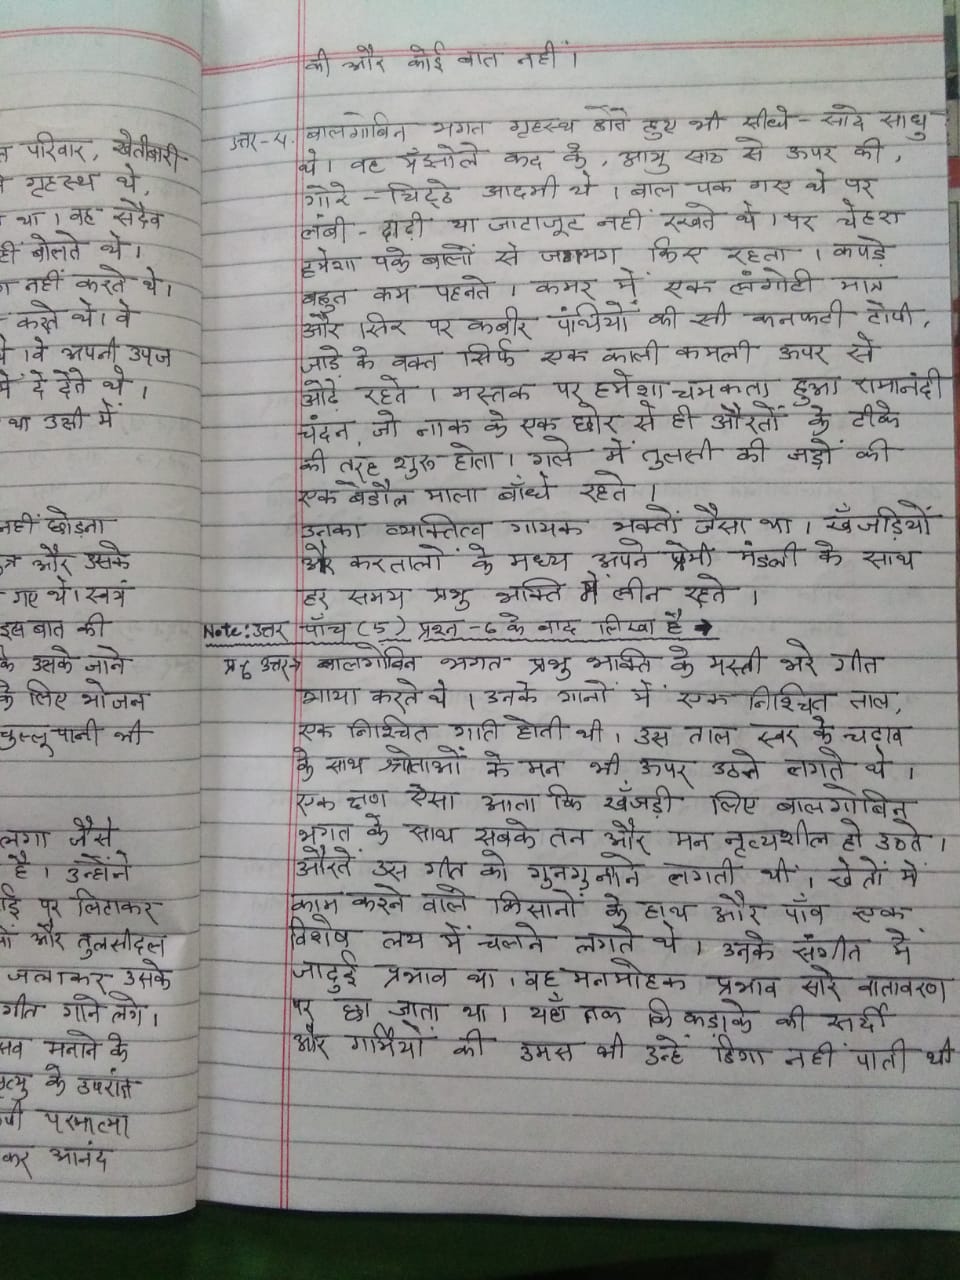 त परिवार, खेतीबारी
गृहस्थ थे,
था। वह सदैव
हीं बोलते थे।
नहीं करते थे।
करते थे। वे
थे। वे अपनी उपज
में दे देते थे।
था उसी में
नहीं छोड़ना
त्र और उसके
गए थे। स्वयं
इस बात की
के उसके जाने
के लिए भोजन
चुल्लू पानी भी
लगा जैसे
है। उन्होंने
ाई पर लिटाकर
ों और तुलसीदल
जलाकर उसके
गीत गाने लगे।
सव मनाने के
मृत्यु के उपरांत
परमात्मा
कर आनंद
की और कोई बात नहीं।
उत्तर-4. बालगोबिन भगत गृहस्थ होते हुए भी सीधे-सादे साधु
थे। वह मँझोले कद के, आयु साठ से ऊपर की,
गोरे-चिट्टे आदमी थे। बाल पक गए थे पर
लंबी-दाढ़ी या जाटाजूट नहीं रखते थे। पर चेहरा
हमेशा पके बालों से जगमग किए रहता। कपड़े
बहुत कम पहनते। कमर में एक लंगोटी मात्र
और सिर पर कबीर पंथियों की सी कनफटी टोपी,
जाड़े के वक्त सिर्फ एक काली कमली ऊपर से
ओढ़े रहते। मस्तक पर हमेशा चमकता हुआ रामानंदी
चंदन, जो नाक के एक छोर से ही औरतों के टीके
की तरह शुरू होता। गले में तुलसी की जड़ों की
एक बेडौल माला बाँधे रहते।
उनका व्यक्तित्व गायक भक्तों जैसा था। खँजड़ियों
और करतालों के मध्य अपने प्रेमी मंडली के साथ
हर समय प्रभु भक्ति में लीन रहते।
Note: उत्तर पाँच (5) प्रश्न-6 के बाद लिखा है →
प्र6 उत्तर→ बालगोबिन भगत प्रभु भक्ति के मस्ती भरे गीत
गाया करते थे। उनके गानों में एक निश्चित ताल,
एक निश्चित गति होती थी। उस ताल स्वर के चढ़ाव
के साथ श्रोताओं के मन भी ऊपर उठने लगते थे।
एक क्षण ऐसा आता कि खँजड़ी लिए बालगोबिन
भगत के साथ सबके तन और मन नृत्यशील हो उठते।
औरतें उस गीत को गुनगुनाने लगती थीं, खेतों में
काम करने वाले किसानों के हाथ और पाँव एक
विशेष लय में चलने लगते थे। उनके संगीत में
जादुई प्रभाव था। वह मनमोहक प्रभाव सारे वातावरण
पर छा जाता था। यहाँ तक कि कड़ाके की सर्दी
और गर्मियों की उमस भी उन्हें डिगा नहीं पाती थी